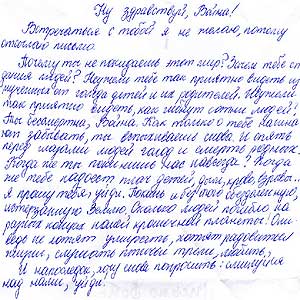 Ну здравствуй, Война!
Встречаться с тобой я не желаю, потому
отсылаю письмо.
Почему ты не покидаешь этот мир? Зачем тебе
людей? Неужели тебе так приятно видеть
от голода детей и их родителей. Неужели
так приятно видеть, как гибнут сотни людей?
Ты бессмертна, Война. Как только о тебе начина-
ют забывать, ты вспыхиваешь снова. И опять
перед глазами людей голод и смерть родных.
Когда же ты покинешь нас навсегда? Когда
же тебе надоест плач детей, дым, кровь, взрывы...
Я прошу тебя, уйди. Покинь и
Землю. Сколько людей погибло на
разных концах нашей крошечной планеты! Они
ведь не хотят умирать, хотят радоваться
жизни, слушать птичьи трели, любить,
И напоследок, хочу снова попросить: смилуйся
над нами, уйди.